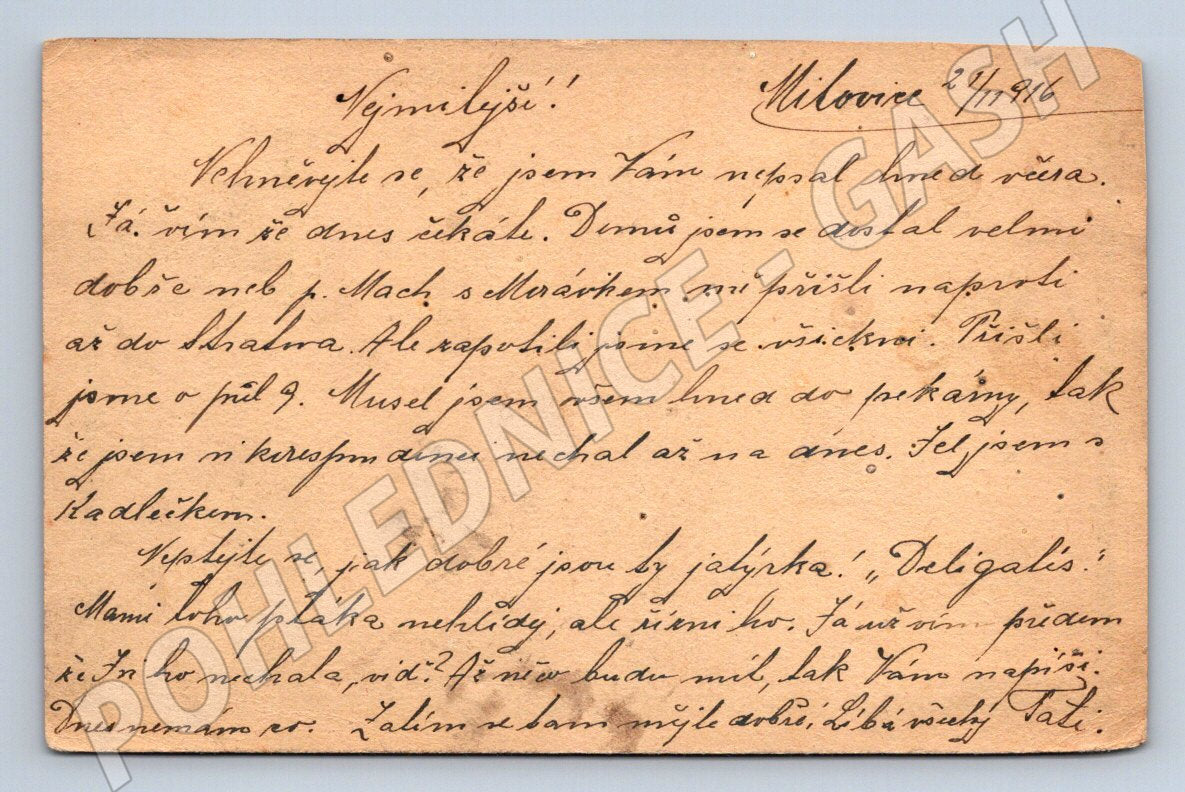 Milovice 21/11 916
Nejmilejší!
Nehněvejte se, že jsem Vám nepsal hned včera.
Já vím že dnes čekáte. Domů jsem se dostal velmi
dobře neb p. Mach s Morávkem mě přišli naproti
až do Stratova. Ale zapotili jsme se všickni. Přišli
jsme o půl 9. Musel jsem všem hned do pekárny, tak
že jsem i korespondenci nechal až na dnes. Jel jsem s
Kadlečkem.
Neptejte se, jak dobré jsou ty jatýrka! „Deligatés."
Mami toho ptáka nehlídej, ale řízni ho. Já už vím předem
že ho nechala, viď? Až něco budu mít, tak Vám napíši.
Dnes nemám co. Zatím se tam mějte dobře, Líbá všechny Tati.
POHLEDNICE - GASH